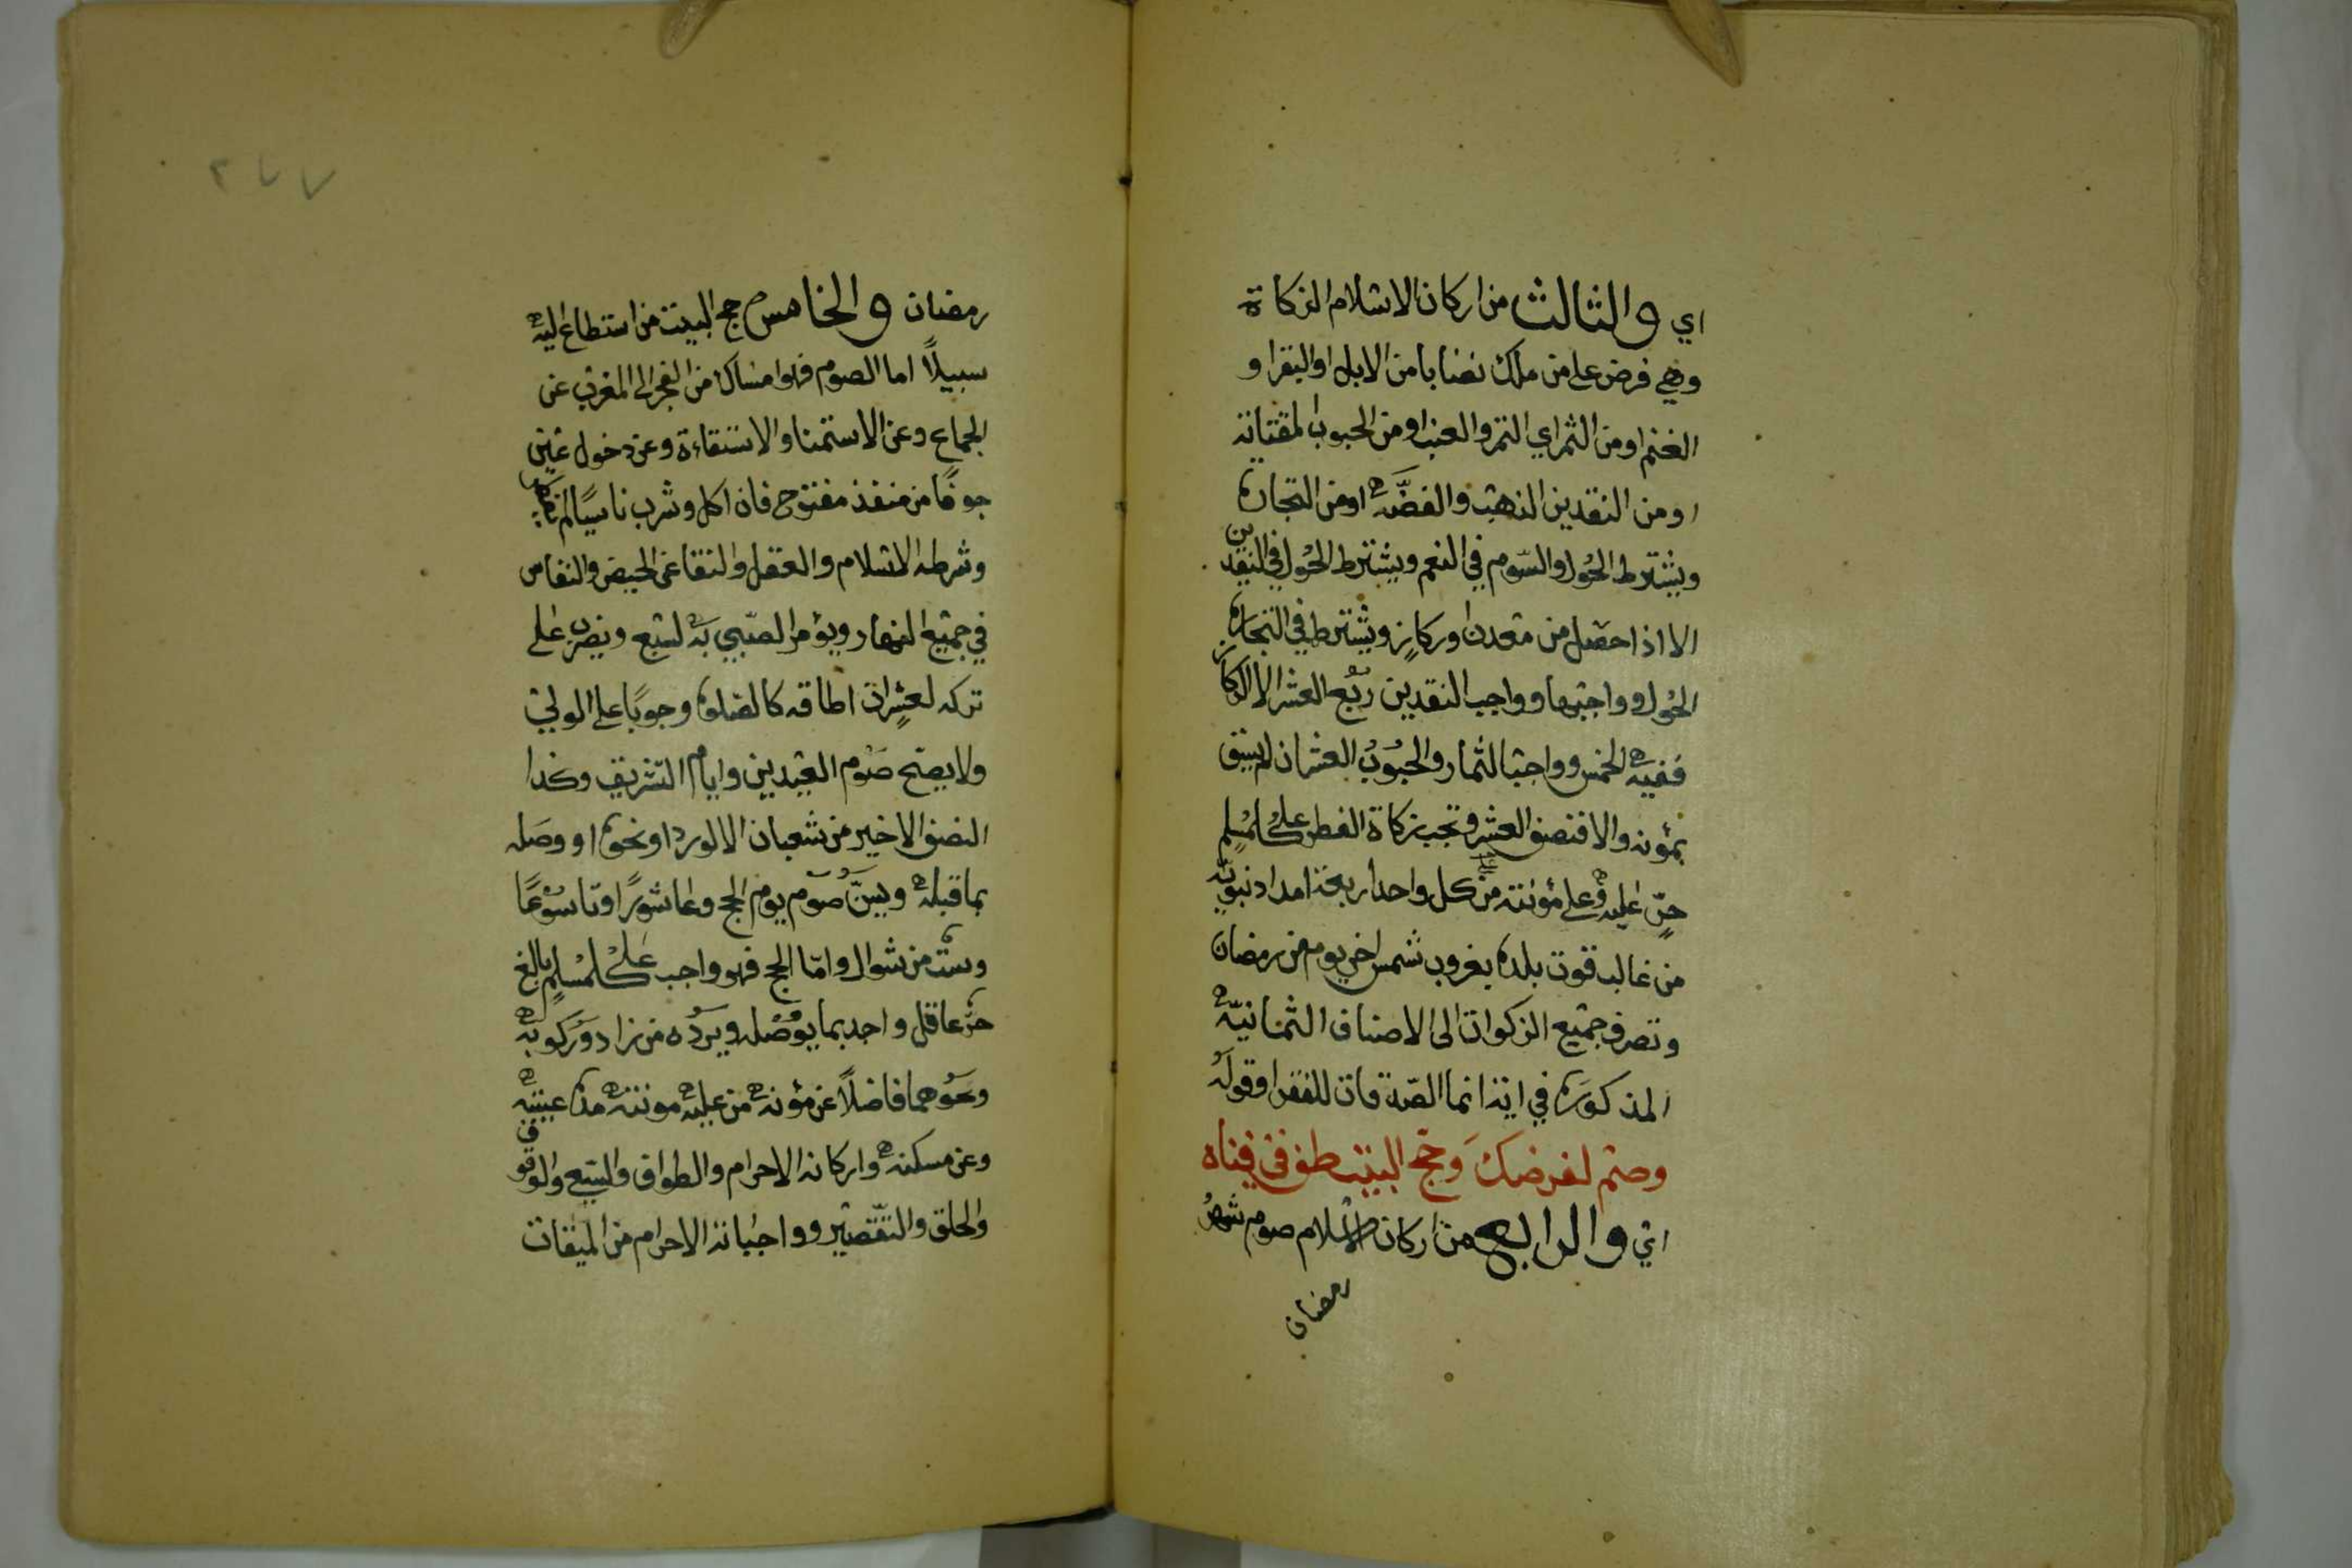 اي والثالث من اركان الاسلام الزكاة
وهي فرض على من ملك نصابا من الابل او البقر او
الغنم او من الثمر اي التمر والعنب او من الحبوب المقتاتة
او من النقدين الذهب والفضه او من التجارة
ويشترط الحول والسوم في النعم ويشترط الحول في النقدين
الا اذا حصل من معدن او ركاز ويشترط في التجارة
الحول وواجبها وواجب النقدين ربع العشر الا الركاز
ففيه الخمس وواجب الثمار والحبوب العشر ان لم يسق
بمؤنه والا فنصف العشر وتجب زكاة الفطر على كل مسلم
حر عليه وعلى مؤنته من كل واحد اربعة امداد نبويه
من غالب قوت بلده بغروب شمس اخر يوم من رمضان
وتصرف جميع الزكوات الى الاصناف الثمانيه
المذكورة في اية انما الصدقات للفقرا وقوله
وصم لفرضك وحج البيت طف في فناه
اي والرابع من اركان الاسلام صوم شهر
رمضان
٢٧٧
رمضان والخامس حج البيت من استطاع اليه
سبيلاً اما الصوم فهو امساك من الفجر الى المغرب عن
الجماع وعن الاستمنا والاستقاءة وعن دخول عين
جوفًا من منفذ مفتوح فان اكل وشرب ناسيًا لم
وشرطه الاسلام والعقل والنقا عن الحيض والنفاس
في جميع النهار ويؤمر الصبي به لسبع ويضرب على
تركه لعشر ان اطاقه كالصلوة وجوبًا على الولي
ولا يصح صوم العيدين وايام التشريق وكذا
النصف الاخير من شعبان الا لورد او نحوه او وصله
بما قبله ويسن صوم يوم الحج وعاشورا وتاسوعا
وست من شوال واما الحج فهو واجب على كل مسلم بالغ
حر عاقل واجد بما يوصله ويرده من زاد ومركوبه
ونحوهما فاضلاً عن مؤنه من عليه مونته مدة غيبته
وعن مسكنه واركانه الاحرام والطواف والسعي والوقوف
والحلق والتقصير وواجباته الاحرام من الميقات